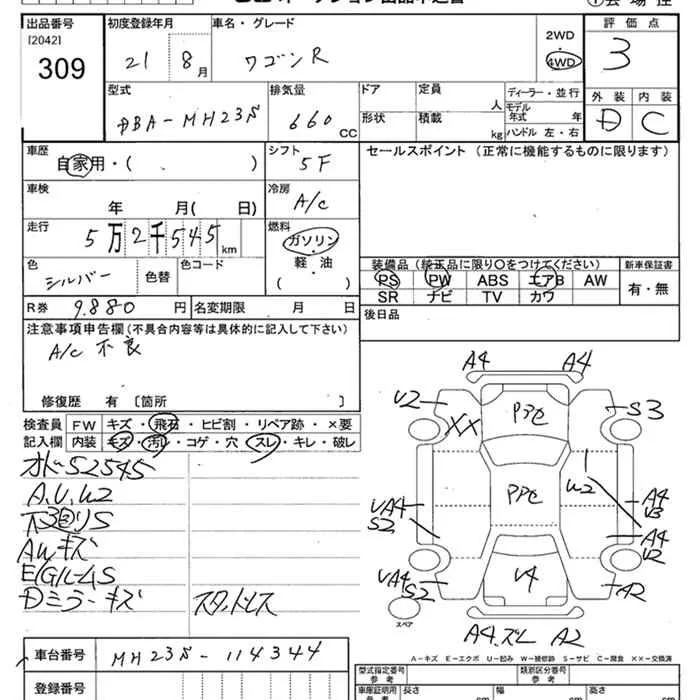 出品番号
[2042]
309
初度登録年月
21
8月
車名・グレード
ワゴンR
2WD
・
4WD
評価点
3
型式
DBA-MH23S
排気量
660
CC
ドア
形状
定員
人
積載
kg
ディーラー・並行
モデル年式 年
ハンドル 左・右
外装
内装
D
C
車歴
自家用・( )
シフト
5F
車検
年 月( 日)
冷房
A/C
走行
5万2千545km
燃料
ガソリン
・
軽・油
( )
色
シルバー
色替
色コード
R券
9.880円
名変期限 月 日
セールスポイント (正常に機能するものに限ります)
装備品(純正品に限り○をつけてください)
新車保証書
PS
PW
ABS
エアB
AW
SR
ナビ
TV
カワ
有・無
後日品
注意事項申告欄(不具合内容等は具体的に記入して下さい)
A/C 不良
修復歴 有〔箇所 〕
検査員
記入欄
FW
キズ・飛石・ヒビ割・リペア跡・×要
内装
キズ・汚れ・コゲ・穴・スレ・キレ・破レ
A.U.W2
下回りS
AWキズ
Dミラーキズ
スタッドレス
A4
A4
U2
XX
S3
PPC
PPC
W2
UA4
S2
A4
U3
A4
U2
UA4
S2
V4
A2
A4.ズレ
A2
スペア
A-キズ E-エクボ U-凹み W-補修跡 S-サビ C-腐食 ××-交換済
車台番号
MH23S-114344
登録番号
型式指定番号
類別区分番号
参考
車庫証明用
参考
長さ
cm
幅
cm
高さ
cm